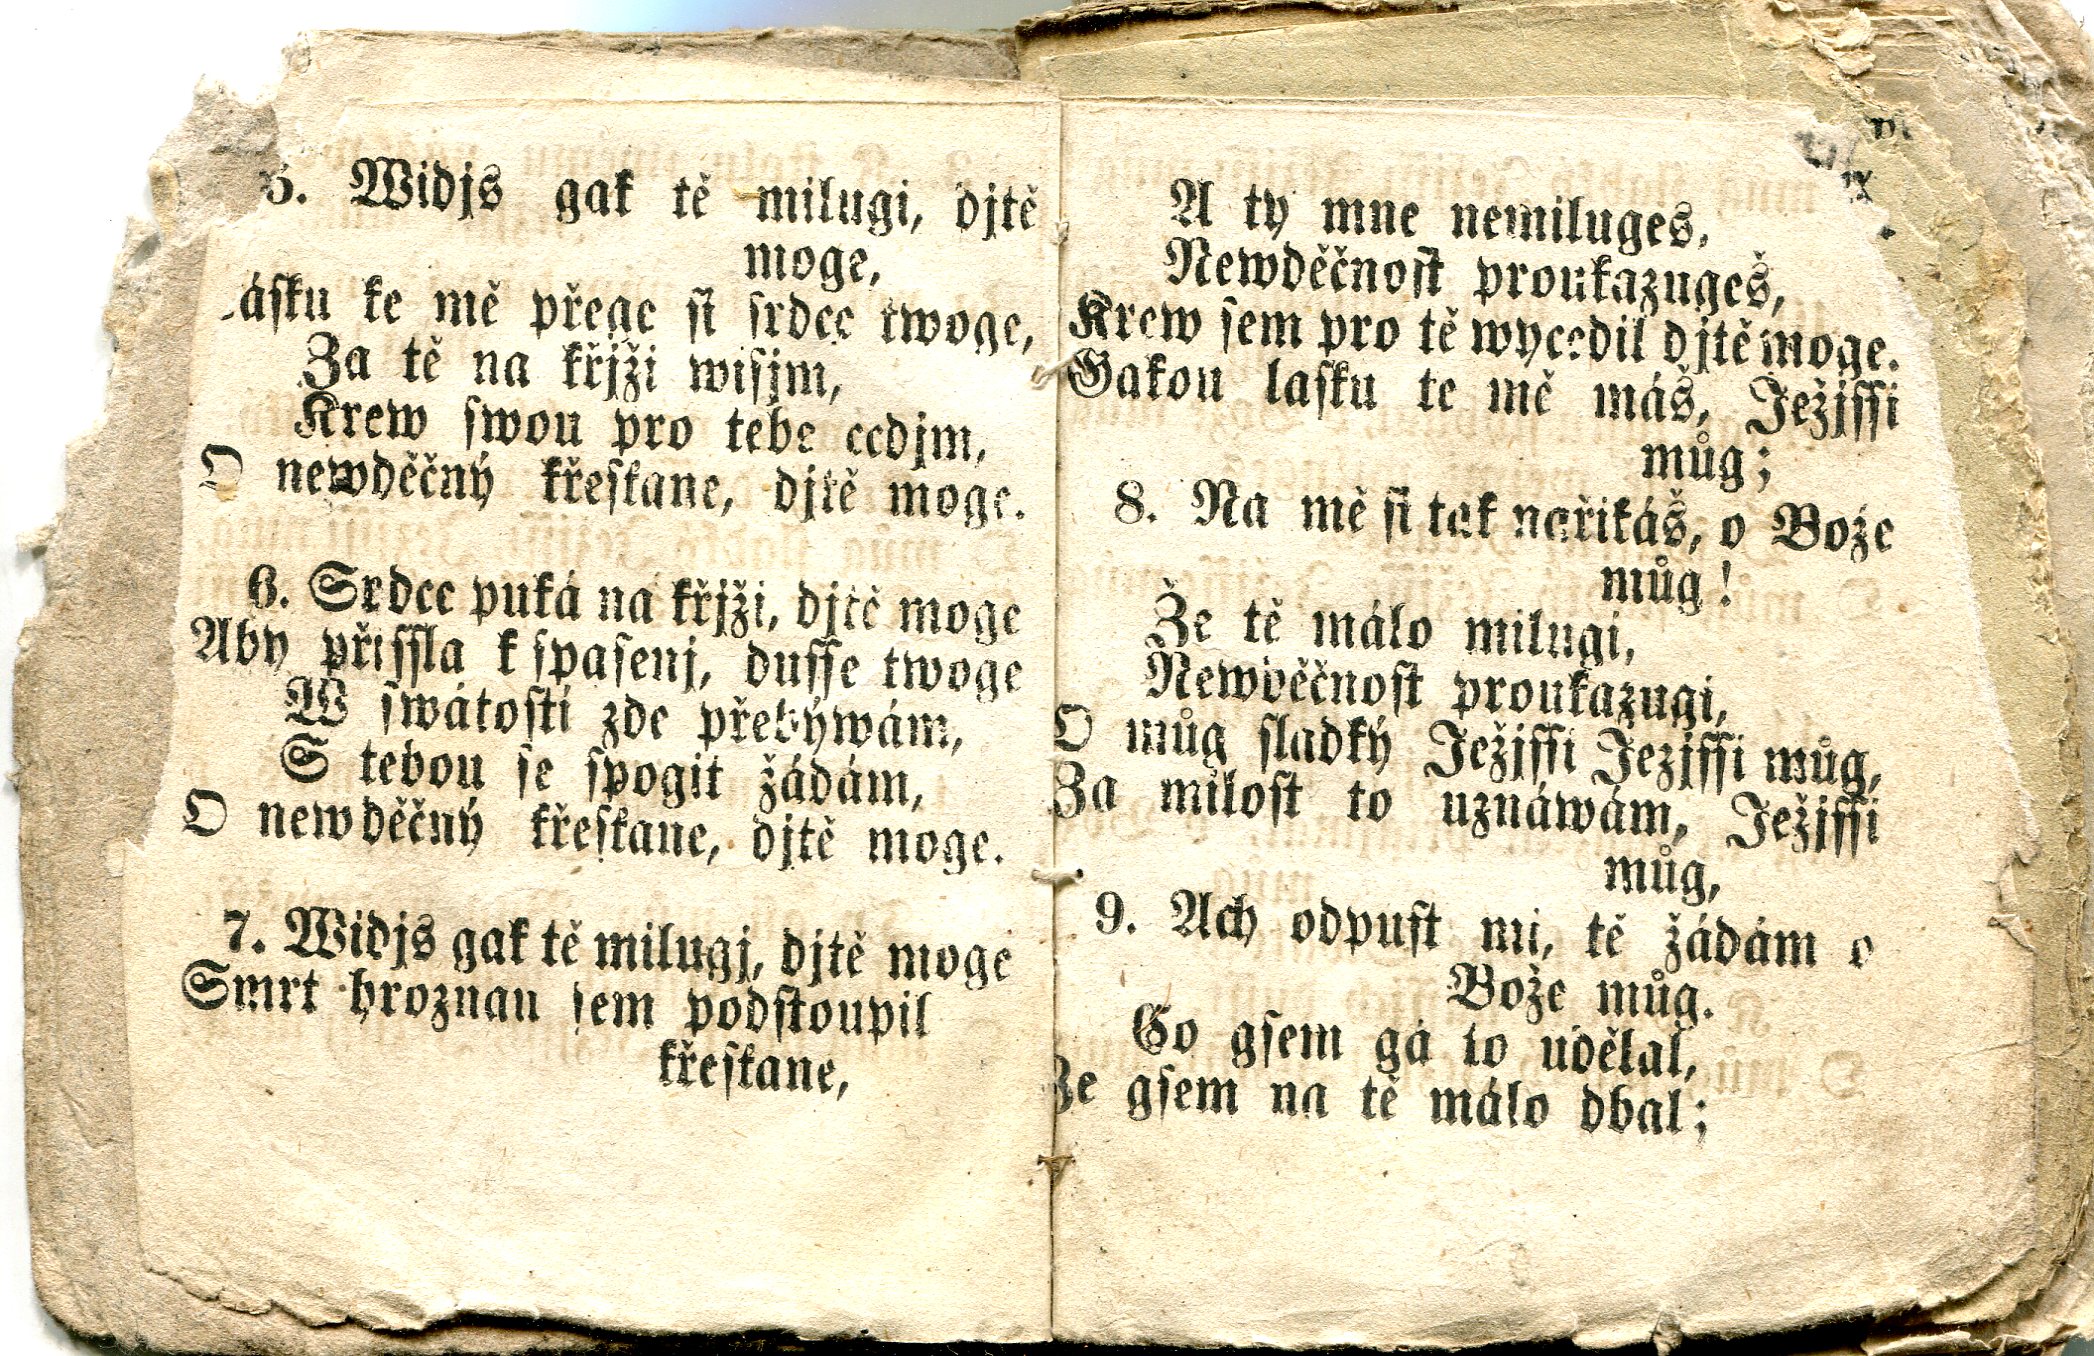 5. Widjs gak tě milugi, djtě
moge,
ásku ke mě přege si srdce twoge,
Za tě na křjži wisjm,
Krew swou pro tebe cedjm,
O newděčný křeskane, djtě moge.
6. Srdce puká na křjži, djtě moge
Aby přissla k spasenj, dusse twoge
W swátosti zde přebýwám,
S tebou se spogit žádám,
O newděčný křeskane, djtě moge.
7. Widjs gak tě milugj, djtě moge
Smrt hroznau sem podstoupil
křeskane,
A ty mne nemiluges,
Newděčnost proukazugeš,
Krew sem pro tě wycedil djtě moge.
Gakou lasku te mě máš, Ježjssi
můg;
8. Na mě si tak nařikáš, o Bože
můg!
Že tě málo milugi,
Newděčnost proukazugi,
O můg sladký Ježjssi Jezjssi můg,
Za milost to uznáwám, Ježjssi
můg,
9. Ach odpust mi, tě žádám o
Bože můg.
Go gsem gá to udělal,
Ze gsem na tě málo dbal;